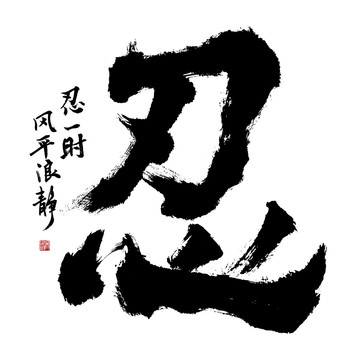 忍
忍一时
风平浪静